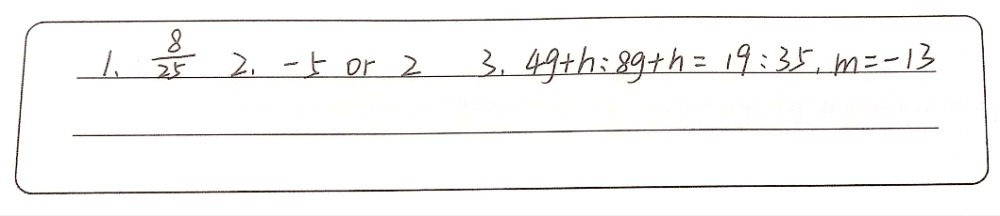 1. 8/25 2. -5 or 2 3. 4g+h:8g+h = 19:35, m=-13